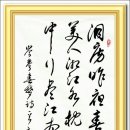 洞房昨夜春
美人湘江水枕
中行尽江南
岑参春梦诗